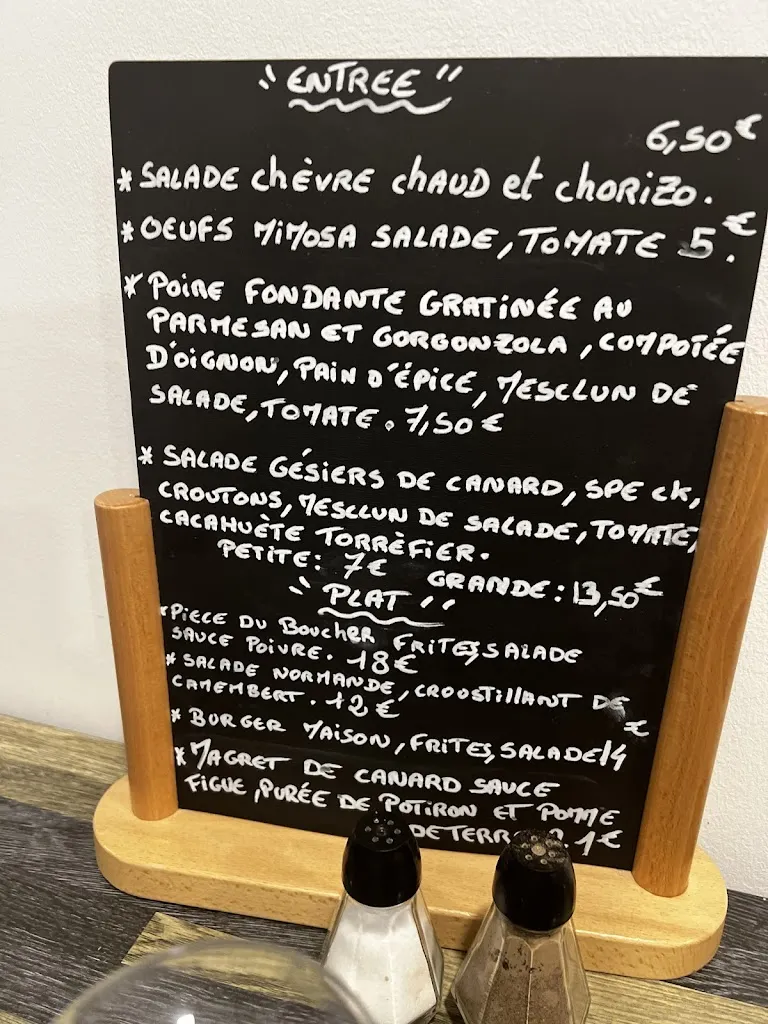 "ENTREE"
6,50€
* SALADE chèVRE chAUD et chORIZO.
* OEUFS MIMOSA SALADE, TOMATE 5€.
* POIRE FONDANTE GRATINÉE AU
PARMESAN ET GORGONZOLA, COMPOTÉE
D'OIGNON, PAIN D'ÉPICE, MESCLUN DE
SALADE, TOMATE. 7,50€
* SALADE GÉSIERS DE CANARD, SPECK,
CROUTONS, MESCLUN DE SALADE, TOMATE,
CACAHUÈTE TORRÈFIER.
PETITE: 7€ GRANDE: 13,50€
"PLAT"
* PIECE DU BOUCHER FRITES, SALADE
SAUCE POIVRE. 18€
* SALADE NORMANDE, CROUSTILLANT DE
CAMEMBERT. 12€
* BURGER MAISON, FRITES, SALADE 14€
* MAGRET DE CANARD SAUCE
FIGUE, PURÉE DE POTIRON ET POMME
DE TERR